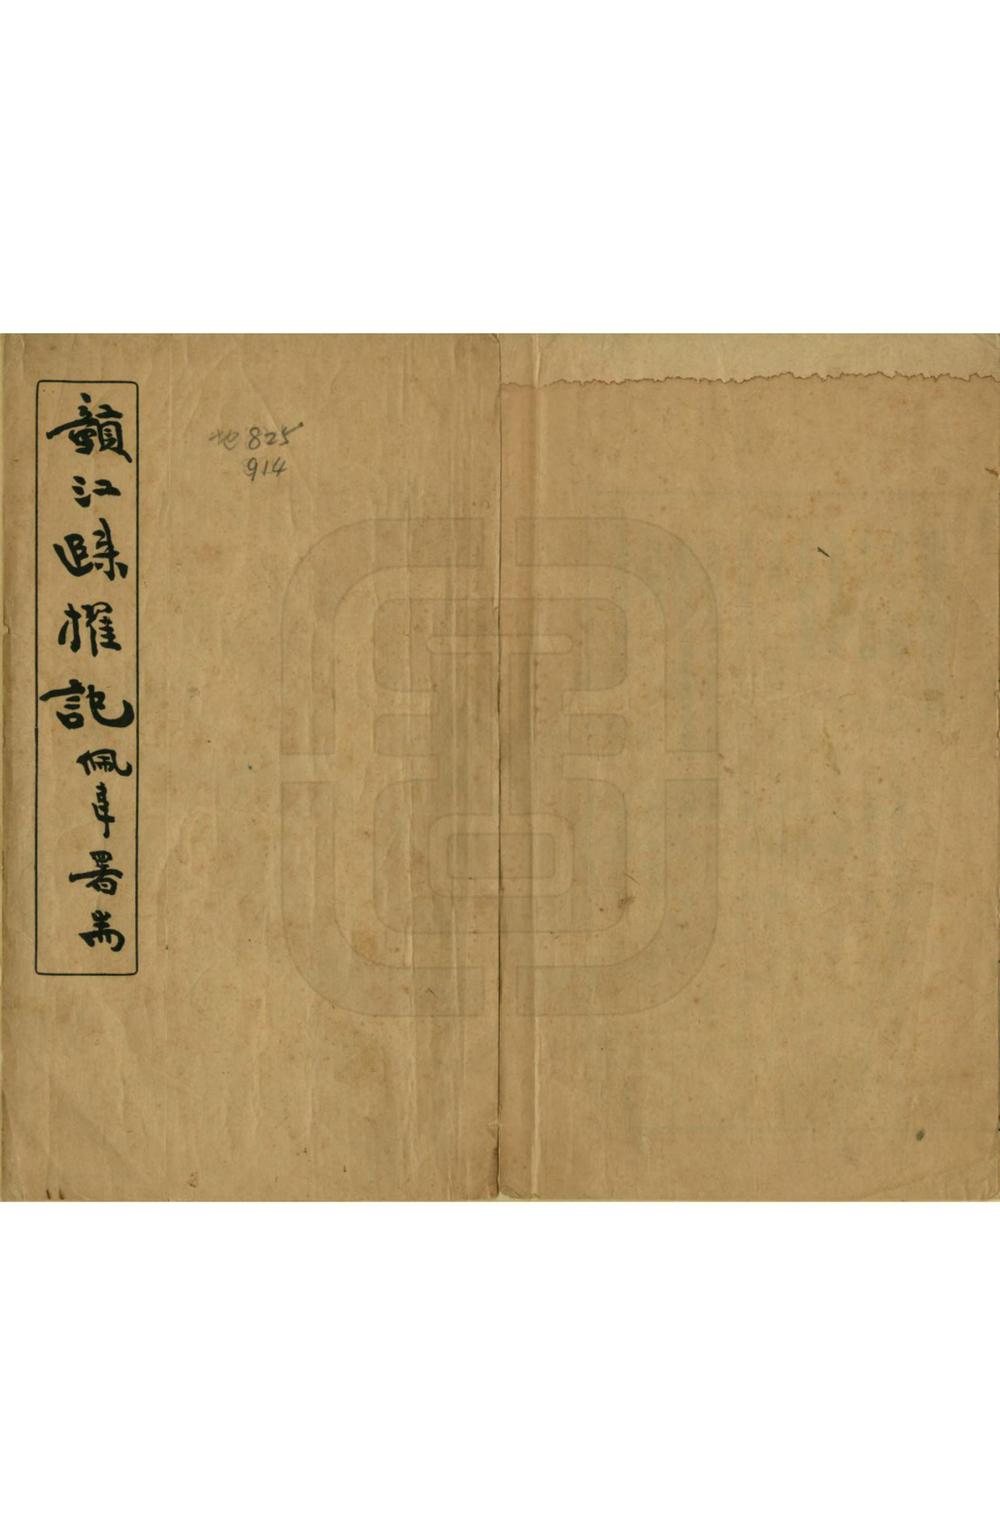 贑江歸櫂記佩韋署耑
地825
914